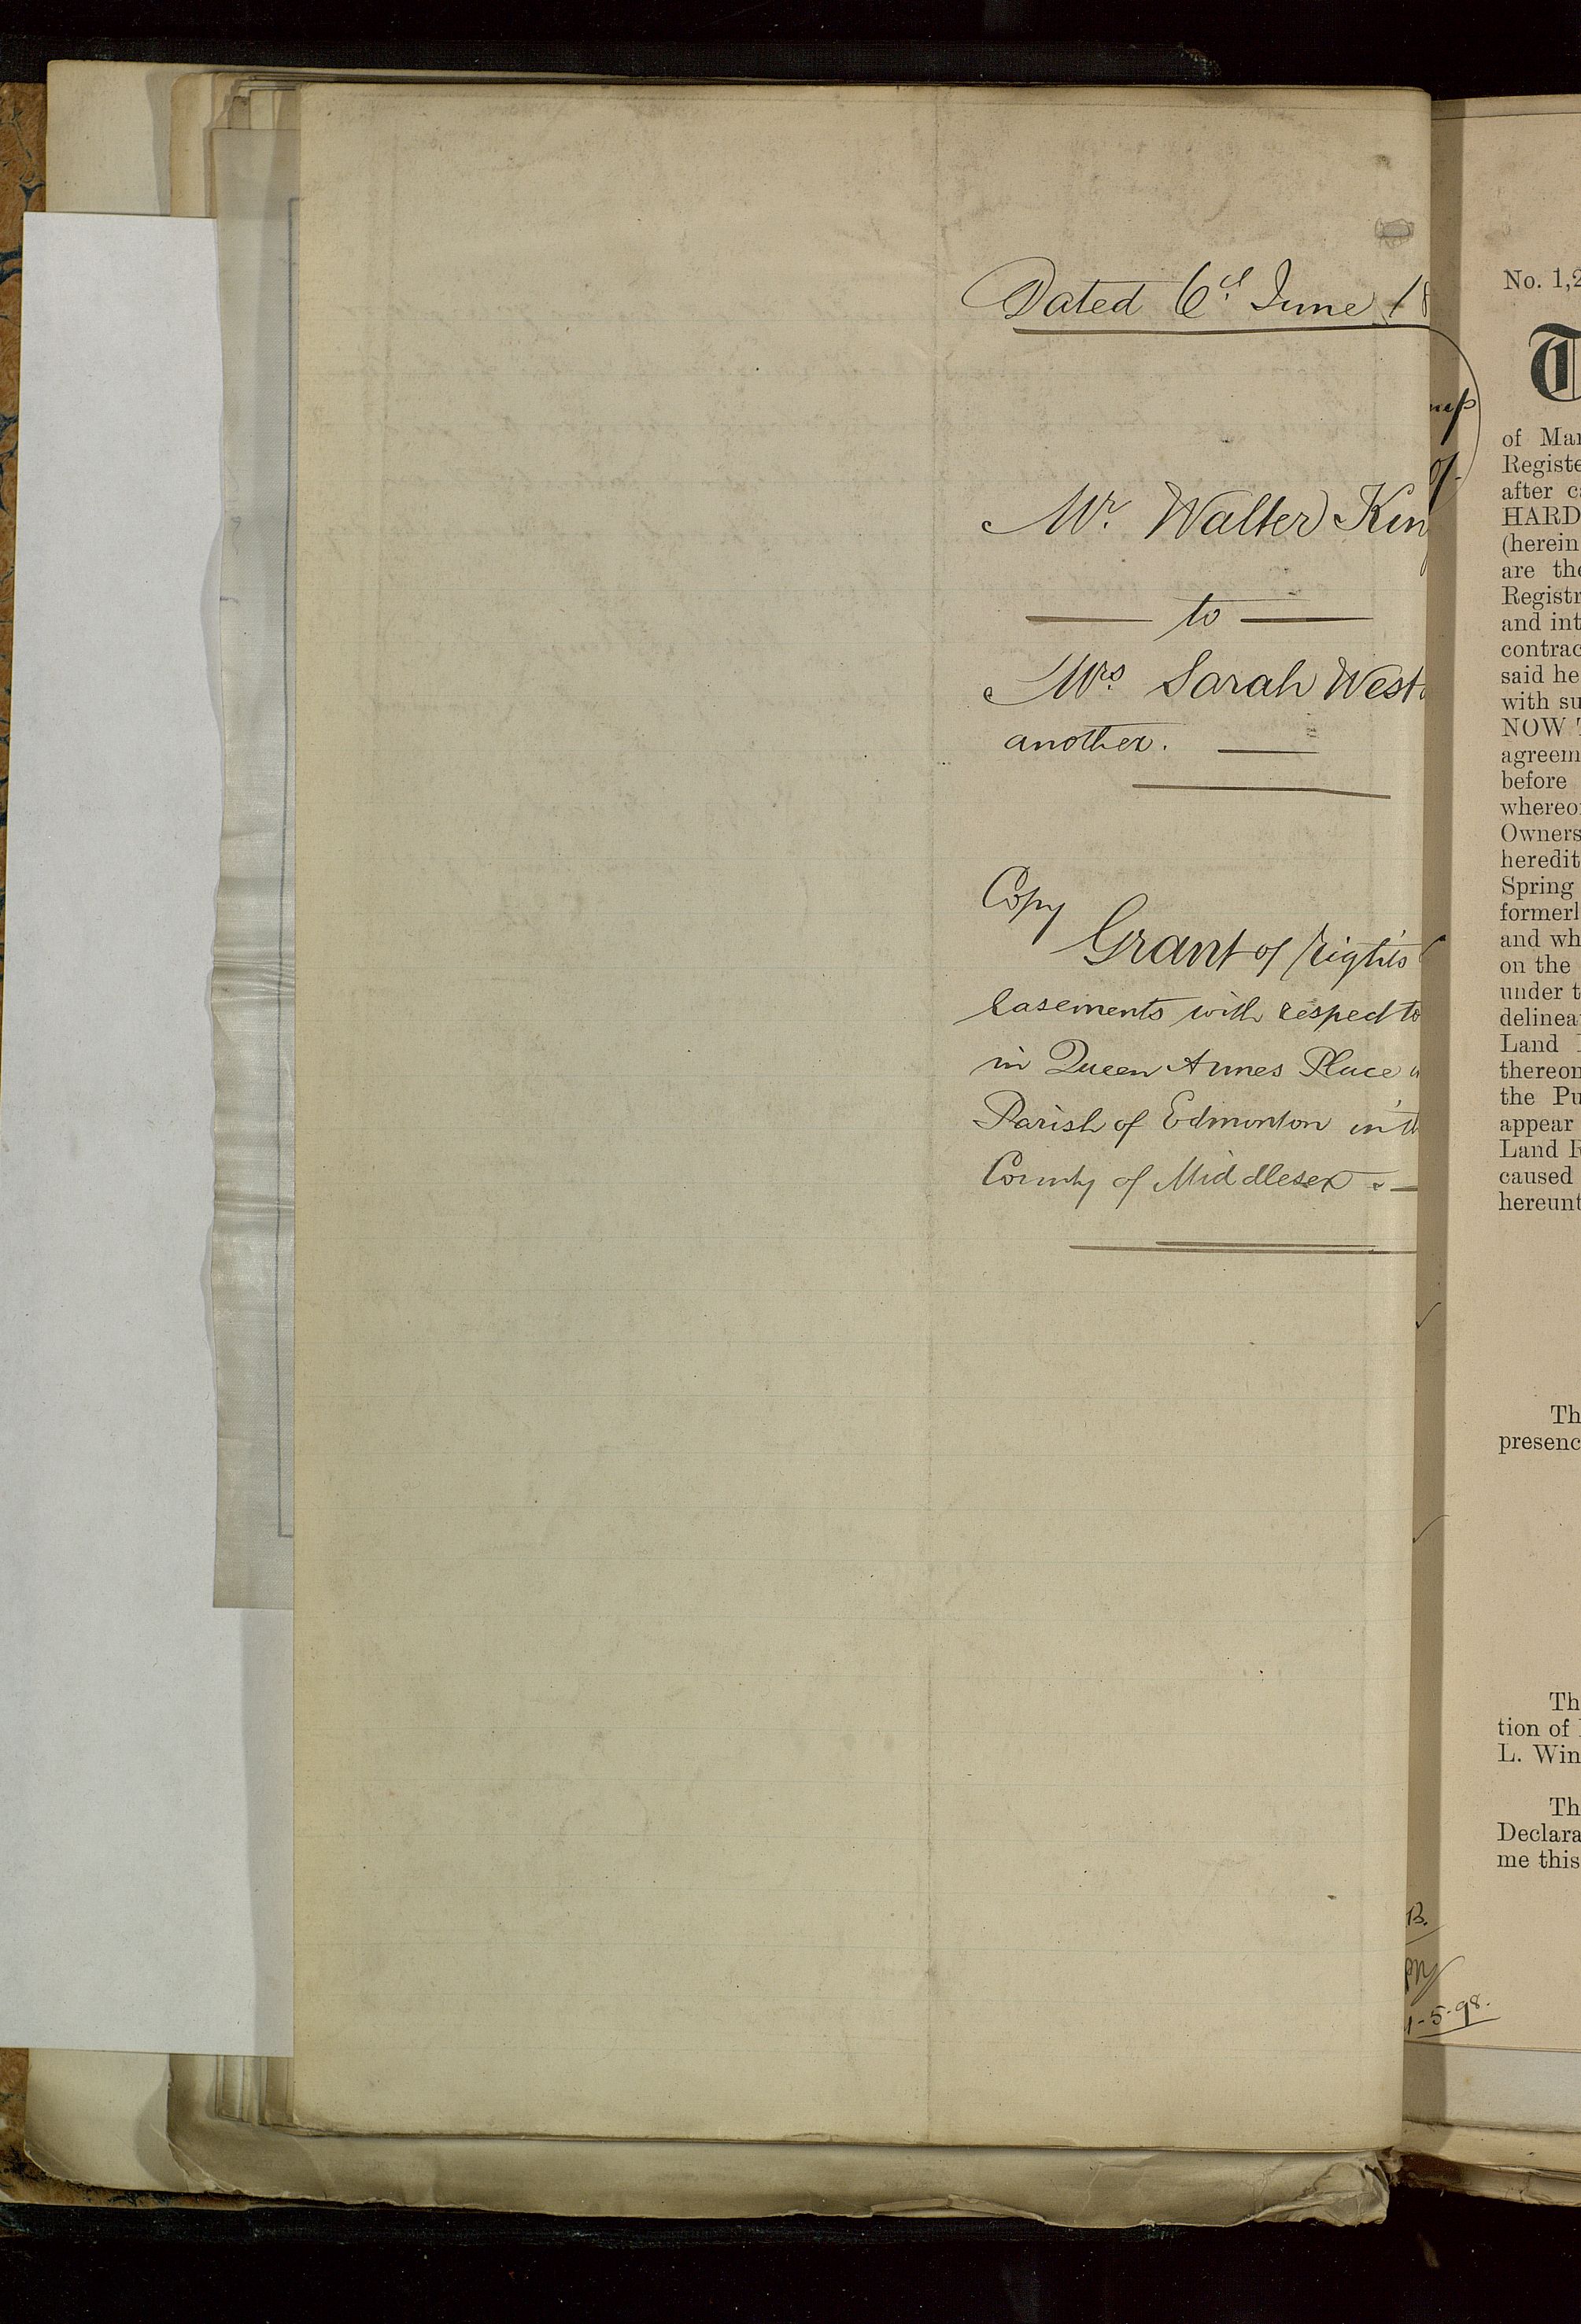 Dated 6th June 18
Mr. Walter King
to
Mrs. Sarah West
another.
Copy
Grant of rights
Easements with respect to
in Queen Annes Place
Parish of Edmonton in th
County of Middlesex
B.
1-5-98.
No. 1,2
T
of Mar
Registe
after ca
HARD
(herein
are the
Registr
and int
contrac
said he
with su
NOW T
agreem
before
whereo
Owners
heredit
Spring
formerl
and wh
on the
under t
delinea
Land
thereon
the Pu
appear
Land R
caused
hereunt
Th
presenc
Th
tion of
L. Win
Th
Declara
me this